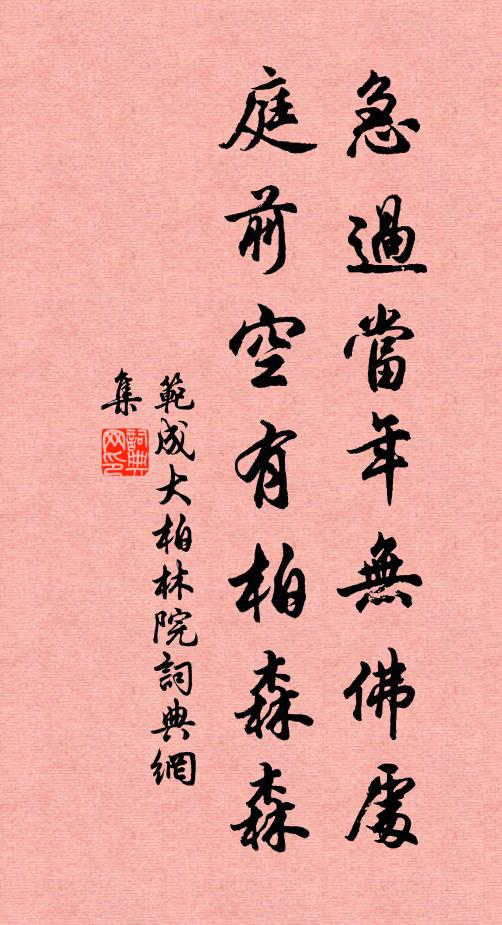 急過當年無佛處
庭前空有柏森森
範成大柏林院詞典網
集
詞典網印